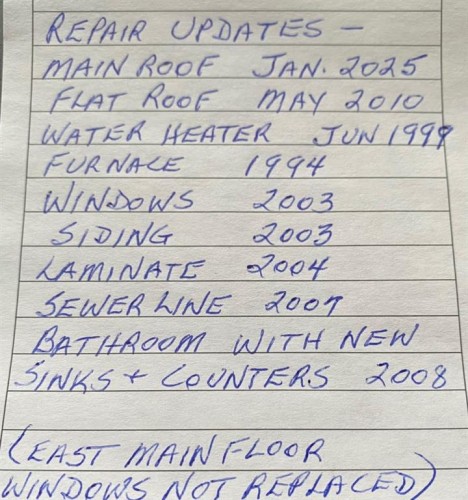 REPAIR UPDATES -
MAIN ROOF JAN. 2025
FLAT ROOF MAY 2010
WATER HEATER JUN 1999
FURNACE 1994
WINDOWS 2003
SIDING 2003
LAMINATE 2004
SEWER LINE 2007
BATHROOM WITH NEW
SINKS + COUNTERS 2008
(EAST MAIN FLOOR
WINDOWS NOT REPLACED)